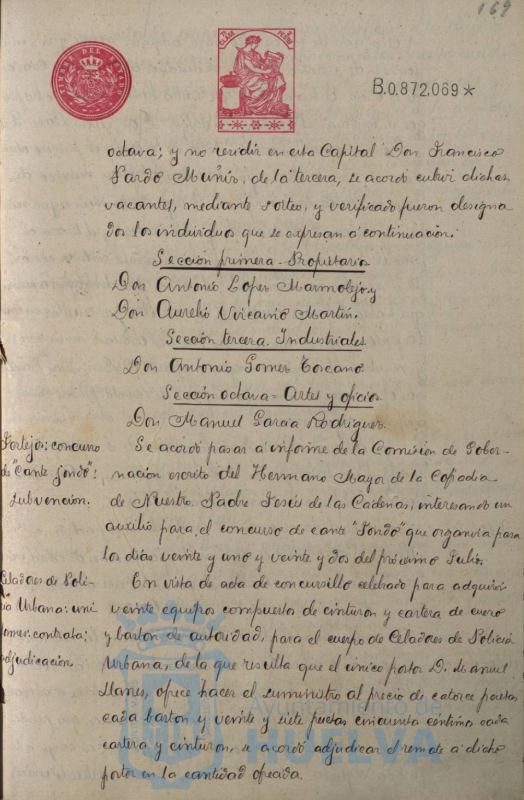 169
TIMBRE DEL ESTADO
B.0.872,069*
octava; y no residir en esta Capital Don Francisco
Pardo Muñiz, de la tercera, se acordó cubrir dichas
vacantes, mediante sorteo, y verificado fueron designa
dos los individuos que se expresan a continuación.
Sección primera - Propietarios
Don Antonio Lopez Marmolejo y
Don Aurelio Vizcaino Martín.
Sección tercera. Industriales
Don Antonio Gomez Toscano.
Sección octava = Artes y oficios
Don Manuel Garcia Rodriguez.
Festejos: concurso
de "Cante Jondo":
subvención.
Se acordó pasar a informe de la Comisión de Gober-
nación escrito del Hermano Mayor de la Cofradia
de Nuestro Padre Jesús de las Cadenas, interesando un
auxilio para el concurso de cante "Jondo" que organiza para
los dias veinte y uno y veinte y dos del próximo Julio.
Celadores de Poli-
cia Urbana: uni
formes: contrata:
adjudicación
En vista de acta de concursillo celebrado para adquirir
veinte equipos compuesto de cinturon y cartera de cuero
y baston de autoridad, para el cuerpo de Celadores de Policia
Urbana, de la que resulta que el único postor D. Manuel
Llanes, ofrece hacer el suministro al precio de catorce pesetas
cada baston y veinte y siete pesetas cincuenta céntimos cada
cartera y cinturon, se acordó adjudicar el remate a dicho
postor en la cantidad ofrecida.
Ayuntamiento de
HUELVA